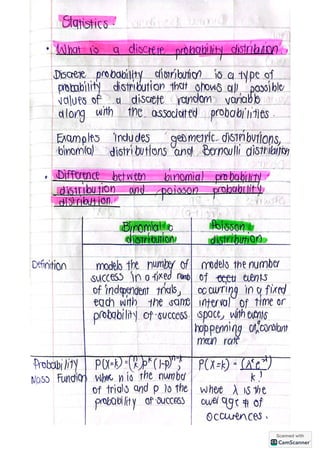 Statistics.
• What is a discrete probability distribution
Discrete probability distribution is a type of
probability distribution that shows all possible
values of a discrete random variable
along with the associated probabilities.
Examples includes geometric distributions,
binomial distributions and Bernoulli distribution
• Difference between binomial probability
distribution and poisson probability
distribution.
Binomial
distribution
Poisson
distribution
Definition
models the number of
success in a fixed
of independent trials,
each with the same
probability of success
models the number
of events
occuring in a fixed
interval of time or
space, with events
happenning at constant
mean rate
Probability
Mass Function
P(X=k) = (n k) p^k (1-p)^n-k
where n is the number
of trials and p is the
probability of success
P(X=k) = (λ^k e^-λ)
k!
where λ is the
average # of
occurences.
Scanned with
CS CamScanner